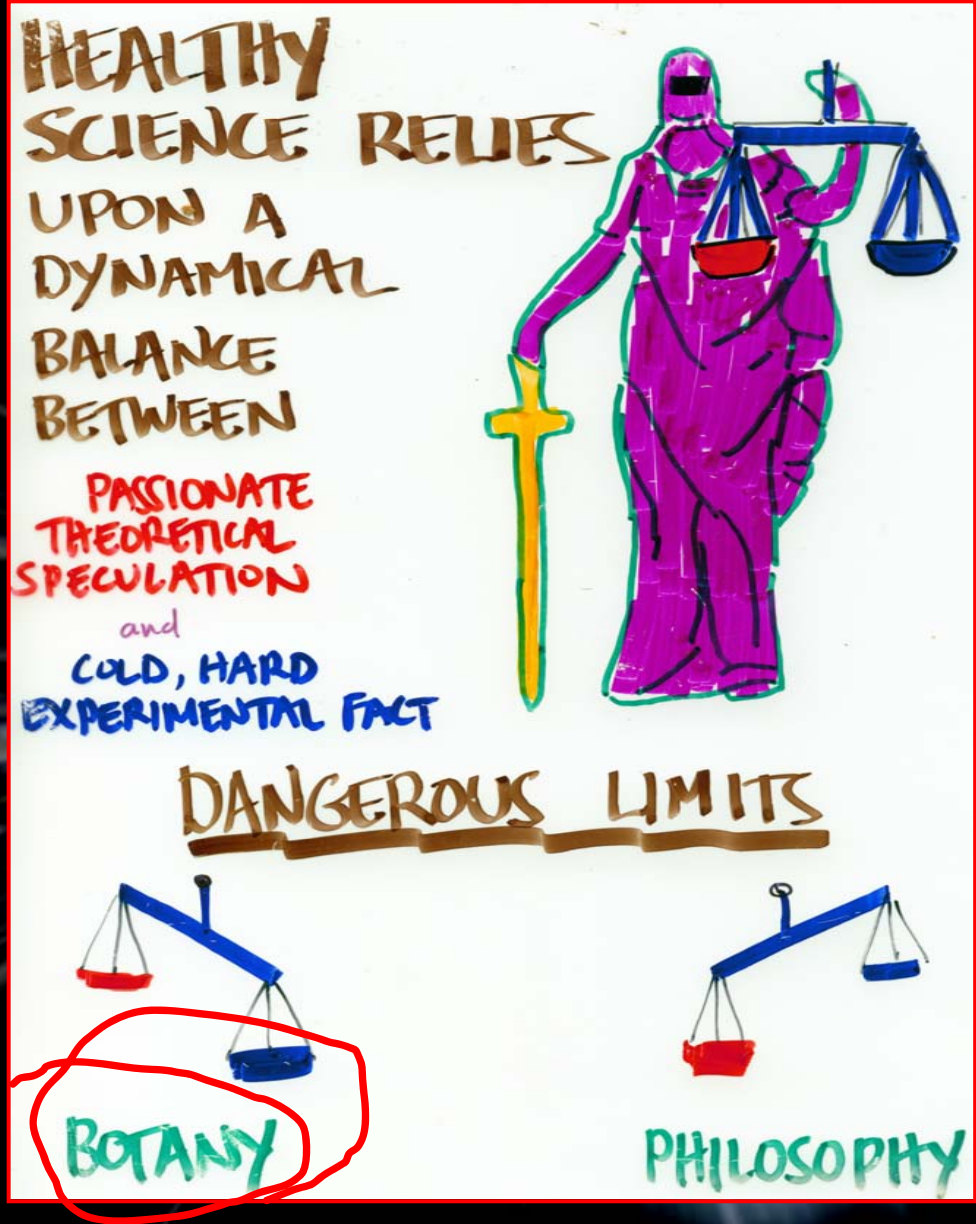 HEALTHY
SCIENCE RELIES
UPON A
DYNAMICAL
BALANCE
BETWEEN
PASSIONATE
THEORETICAL
SPECULATION
and
COLD, HARD
EXPERIMENTAL FACT
DANGEROUS LIMITS
BOTANY
PHILOSOPHY